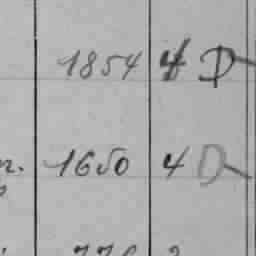 1854 4 D
r. 1650 4 D